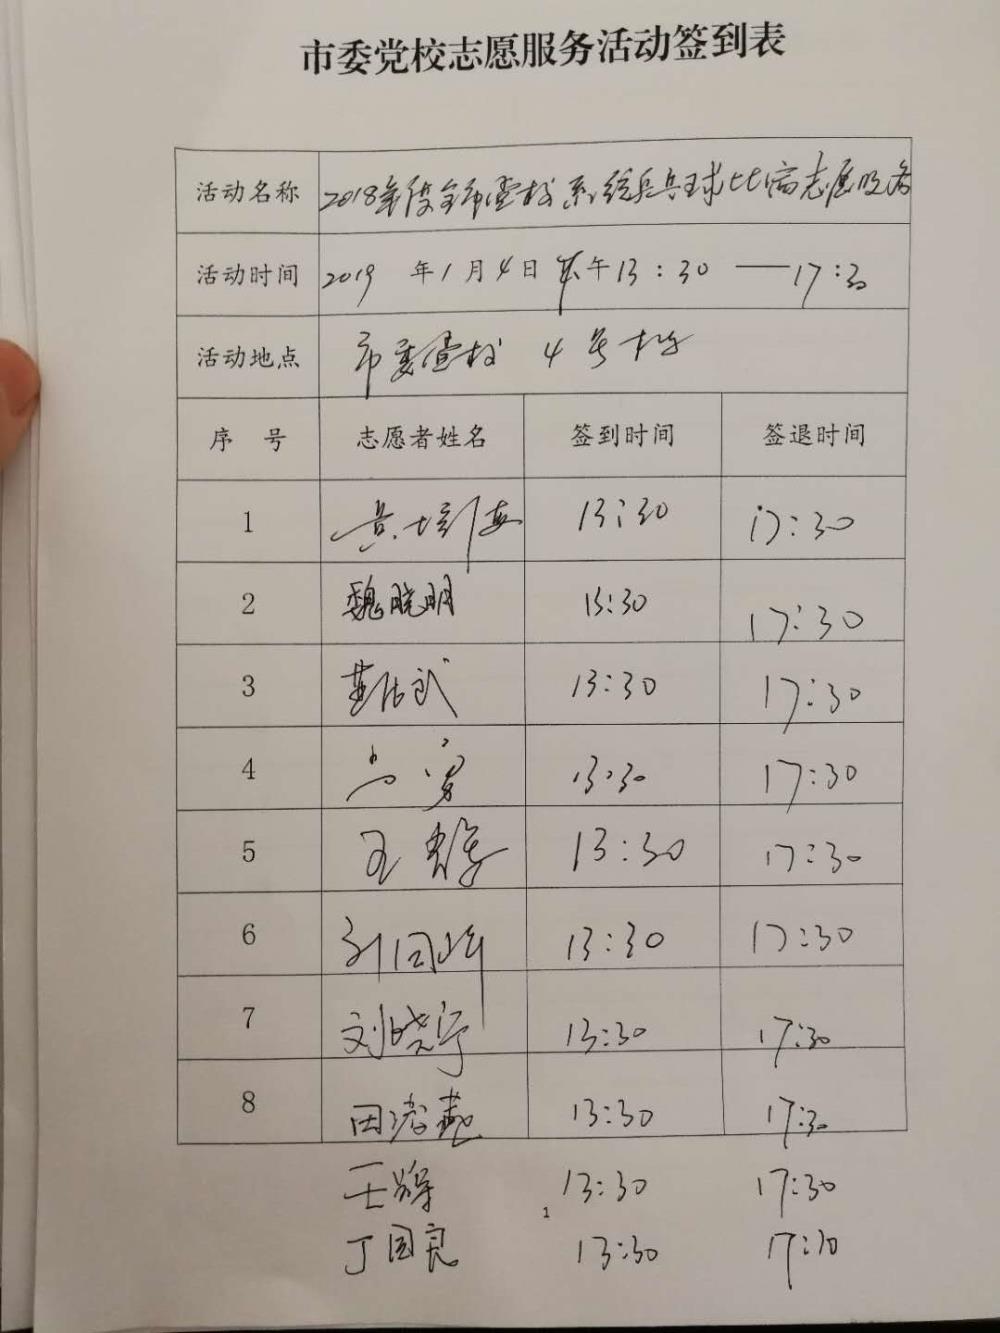 市委党校志愿服务活动签到表
活动名称 2018年度全市党校系统乒乓球比赛志愿服务
活动时间 2019 年1月4日下午13:30 — 17:30
活动地点 市委党校 4号楼
序 号 志愿者姓名 签到时间 签退时间
1 13:30 17:30
2 魏晓明 13:30 17:30
3 13:30 17:30
4 13:30 17:30
5 王 13:30 17:30
6 13:30 17:30
7 刘晓宇 13:30 17:30
8 田 燕 13:30 17:30
王辉 13:30 17:30
1
丁国良 13:30 17:30